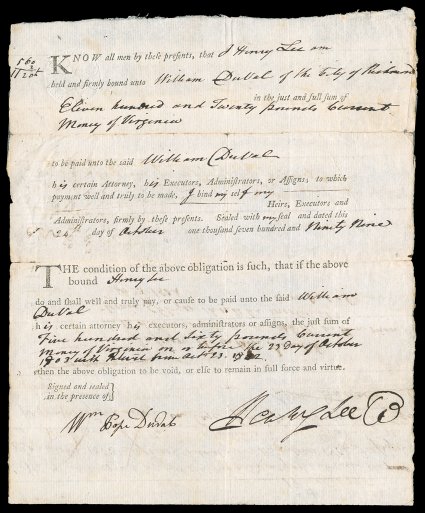 560
2
1120
KNOW all men by these presents, that I Henry Lee am
held and firmly bound unto William DuVal of the City of Richmond
in the just and full sum of
Eleven hundred and Twenty pounds Current
Money of Virginia
to be paid unto the said William DuVal
his certain Attorney, his Executors, Administrators, or Assigns; to which
payment well and truly to be made, I bind my self my
Heirs, Executors and
Administrators, firmly by these presents. Sealed with my seal and dated this
24th day of October one thousand seven hundred and Ninety Nine
THE condition of the above obligation is such, that if the above
bound Henry Lee
do and shall well and truly pay, or cause to be paid unto the said William
DuVal
his certain attorney his executors, administrators or assigns, the just sum of
Five hundred and Sixty pounds Current
Money of Virginia on or before the 23 day of October
with from Octr. 23.
then the above obligation to be void, or else to remain in full force and virtue.
Signed and sealed
in the presence of
Wm Pope Duval
Henry Lee